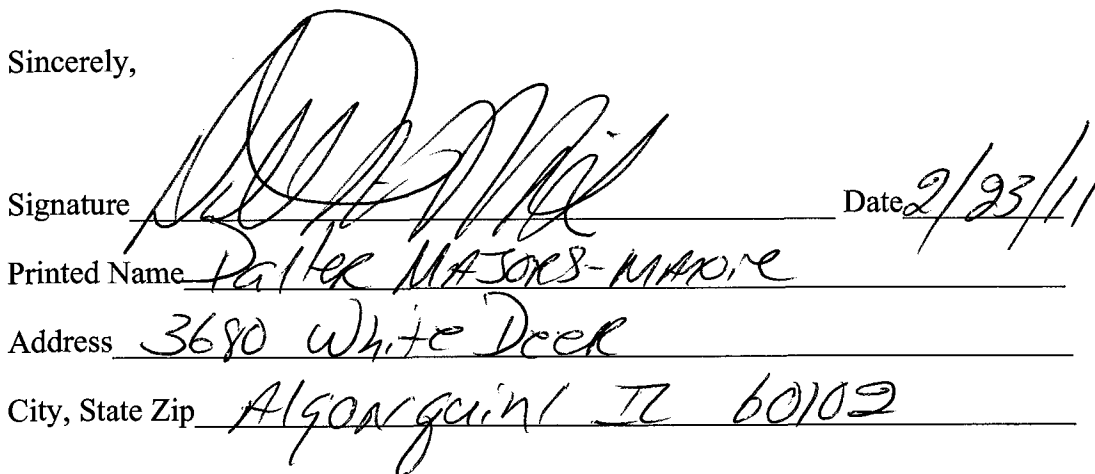 Sincerely,
Signature Date 2/23/11
Printed Name MAJORS-
Address 3680 White Deer
City, State Zip Algonquin IL 60102